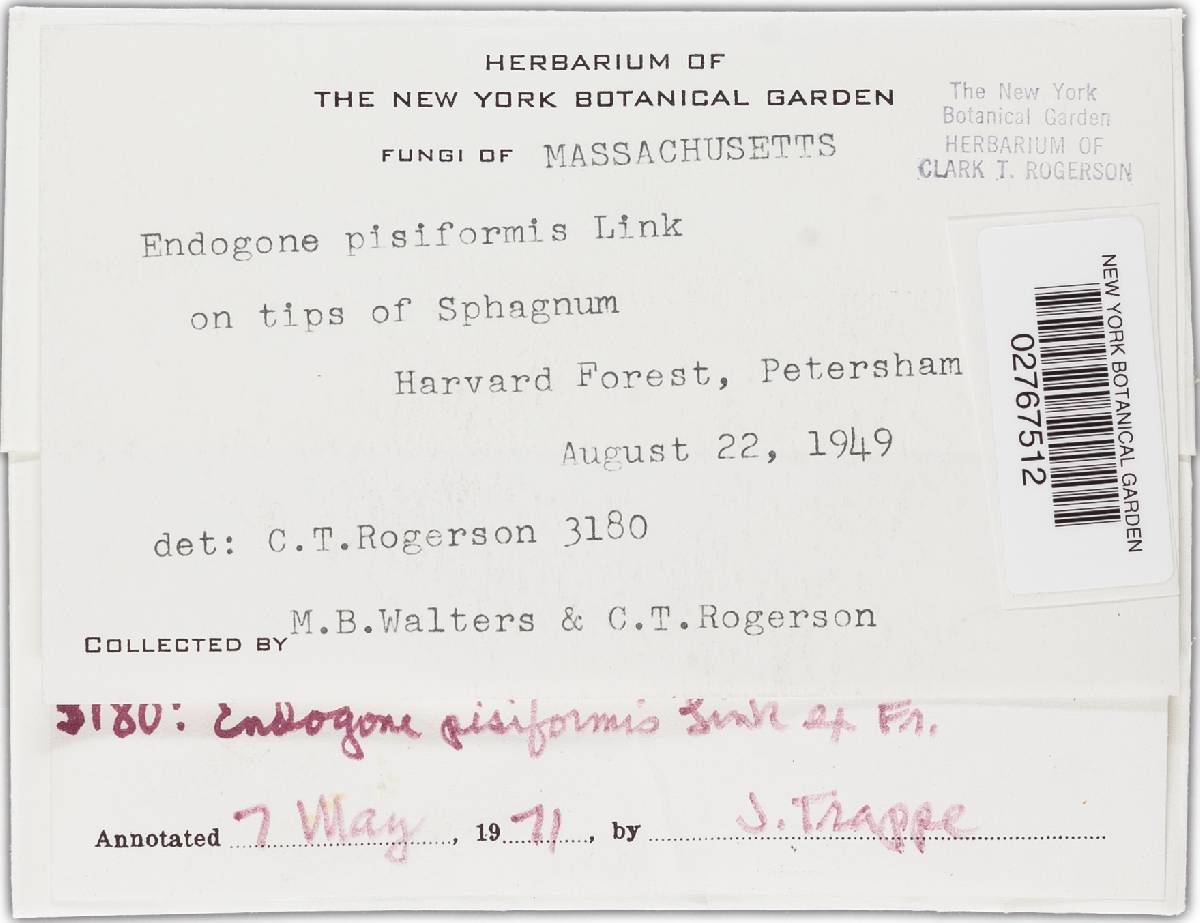 HERBARIUM OF
THE NEW YORK BOTANICAL GARDEN
FUNGI OF MASSACHUSETTS
The New York
Botanical Garden
HERBARIUM OF
CLARK T. ROGERSON
Endogone pisiformis Link
on tips of Sphagnum
Harvard Forest, Petersham
August 22, 1949
det: C.T.Rogerson 3180
COLLECTED BY M.B.Walters & C.T.Rogerson
NEW YORK BOTANICAL GARDEN
02767512
3180: Endogone pisiformis Link ex Fr.
Annotated 7 May, 1971, by J. Trappe